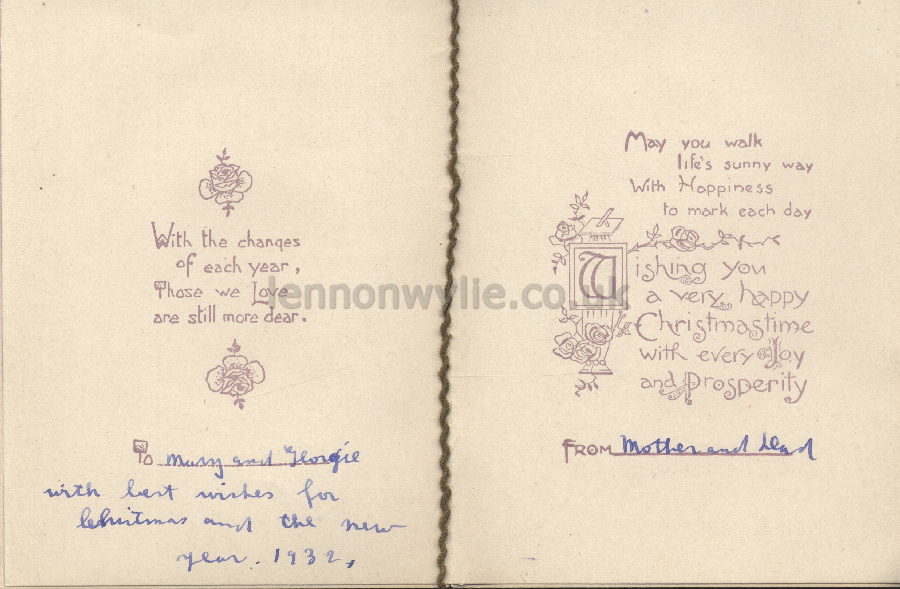 With the changes
of each year,
Those we Love
are still more dear.
To Mary and Georgie
with best wishes for
Christmas and the new
year. 1932,
May you walk
life's sunny way
With Happiness
to mark each day
Wishing you
a very happy
Christmastime
with every Joy
and Prosperity
From Mother and Dad
lennonwylie.co.uk